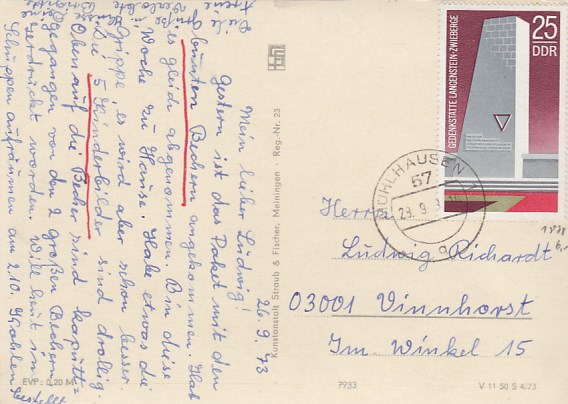 26.9.73
Mein lieber Ludwig!
Gestern ist das Paket mit den
bunten Bechern angekommen. Hab
es gleich abgenommen. Bin diese
Woche zu Hause. Habe etwas die
Grippe, es wird aber schon besser.
Die 5 Kinderbilder sind drollig.
Oben auf die Becher sind kaputt-
gegangen von den 2 großen Bechern
gedrückt worden. Will heut in
Schuppen aufräumen am 2.10. Kohlen
bestellt
EVP: 0,20 M
Kunstanstalt Straub & Fischer, Meiningen - Reg.-Nr. 23
7933
V 11 50 S 4/73
GEDENKSTÄTTE LANGENSTEIN-ZWIEBERGE
25
DDR
MÜHLHAUSEN 1
57
a
Herrn
Ludwig Richardt
03001 Vinnhorst
Im Winkel 15